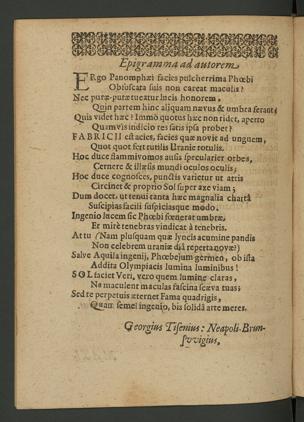 Epigramma ad autorem
ERgo Panomphæi facies pulcherrima Phœbi
Obfuscata suis non careat maculis?
Nec puræ-putæ tueatur lucis honorem,
Quin partem hinc aliquam nævus & umbra ferant?
Quis videt hæc? Immò quotus hæc non ridet, aperto
Quamvis indicio res satis ipsa probet?
FABRICII est acies, facies quæ novie ad unguem,
Quot quot fert rutilis Uranie rotulis.
Hoc duce flammivomos ausis specularier orbes,
Cernere & illæsis mundi oculos oculis;
Hoc duce cognosces, punctis varietur ut atris
Circinet & proprio Sol super axe viam;
Dum docet, ut tenui canta hæc magnalia chartâ
Suscipias facili suspiciasque modo.
Ingenio lucem sic Phœbi fœnerat umbræ,
Et mirè tenebras vindicat à tenebris.
At tu (Nam plusquam quæ lyncis acumine pandis
Non celebrem uraniæ dia reperta novæ?)
Salve Aquila ingenij, Phœbejum germen, ob ista
Addita Olympiacis lumina luminibus!
SOL faciet Veri, vero quem lumine claras,
Ne maculent maculas fascina scæva tuas;
Sed te perpetuis æternet Fama quadrigis,
Quam semel ingenio, bis solidâ arte meres.
Georgius Tisenius: Neapoli-Brun-
svvigius,